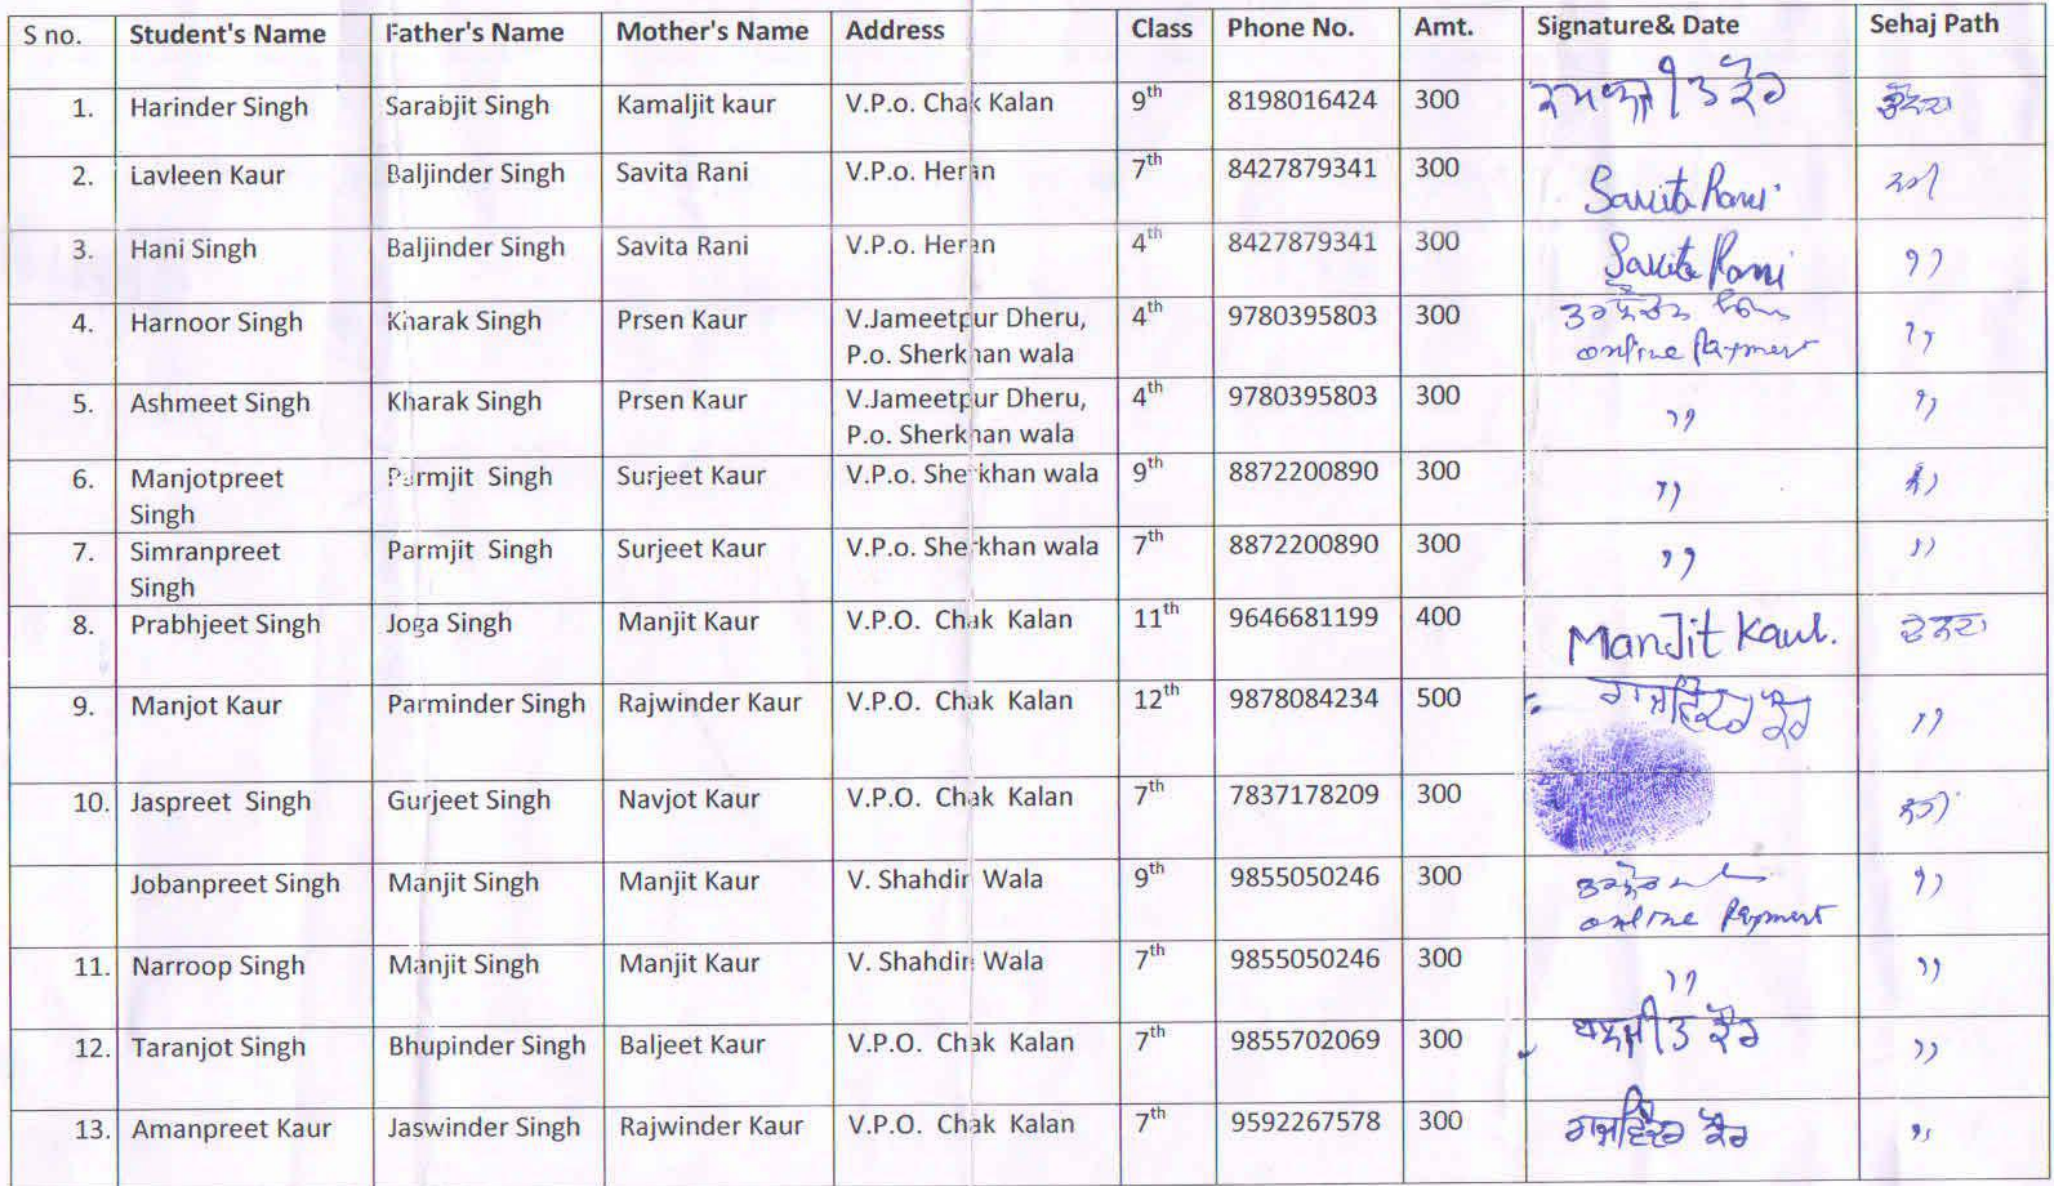 S no. Student's Name Father's Name Mother's Name Address Class Phone No. Amt. Signature& Date Sehaj Path
1. Harinder Singh Sarabjit Singh Kamaljit kaur V.P.o. Chak Kalan 9th 8198016424 300
2. Lavleen Kaur Baljinder Singh Savita Rani V.P.o. Heran 7th 8427879341 300 Savita Rani
3. Hani Singh Baljinder Singh Savita Rani V.P.o. Heran 4th 8427879341 300 Savita Rani ,,
4. Harnoor Singh Kharak Singh Prsen Kaur V.Jameetpur Dheru, 4th 9780395803 300
P.o. Sherkhan wala online Payment ,,
5. Ashmeet Singh Kharak Singh Prsen Kaur V.Jameetpur Dheru, 4th 9780395803 300 ,, ,,
P.o. Sherkhan wala
6. Manjotpreet Parmjit Singh Surjeet Kaur V.P.o. Sherkhan wala 9th 8872200890 300 ,, ,,
Singh
7. Simranpreet Parmjit Singh Surjeet Kaur V.P.o. Sherkhan wala 7th 8872200890 300 ,, ,,
Singh
8. Prabhjeet Singh Joga Singh Manjit Kaur V.P.O. Chak Kalan 11th 9646681199 400 ManJit Kaur.
9. Manjot Kaur Parminder Singh Rajwinder Kaur V.P.O. Chak Kalan 12th 9878084234 500 ਰਾਜਵਿੰਦਰ ਕੌਰ ,,
10. Jaspreet Singh Gurjeet Singh Navjot Kaur V.P.O. Chak Kalan 7th 7837178209 300
Jobanpreet Singh Manjit Singh Manjit Kaur V. Shahdin Wala 9th 9855050246 300 ,,
online Payment
11. Narroop Singh Manjit Singh Manjit Kaur V. Shahdin Wala 7th 9855050246 300 ,, ,,
12. Taranjot Singh Bhupinder Singh Baljeet Kaur V.P.O. Chak Kalan 7th 9855702069 300 ਬਲਜੀਤ ਕੌਰ ,,
13. Amanpreet Kaur Jaswinder Singh Rajwinder Kaur V.P.O. Chak Kalan 7th 9592267578 300 ਰਾਜਵਿੰਦਰ ਕੌਰ ,,